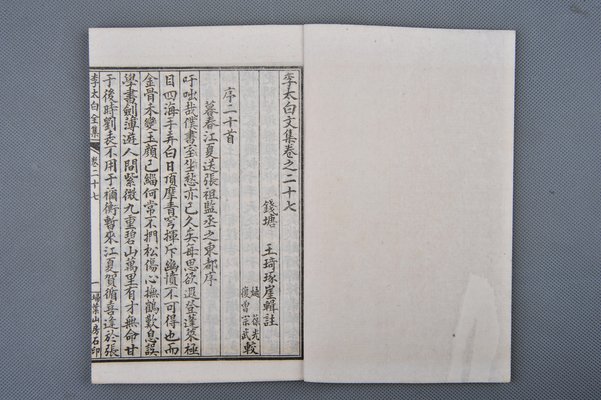 李太白文集卷之二十七
錢塘 王琦琢崖輯註
縉 葆光
復曾 宗武 較
序二十首
暮春江夏送張祖監丞之東都序
吁咄哉僕書室坐愁亦已久矣每思欲遐登蓬萊極
目四海手弄白日頂摩青穹揮斥幽憤不可得也而
金骨未變玉顏已緇何常不捫松傷心撫鶴歎息誤
學書劍薄遊人間紫微九重碧山萬里有才無命甘
于後時劉表不用于禰衡暫來江夏賀循喜逢於張
李太白全集 卷二十七 一 掃葉山房石印